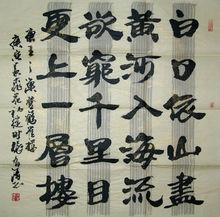 白日依山盡
黃河入海流
欲窮千里目
更上一層樓
王之渙登鸛雀樓